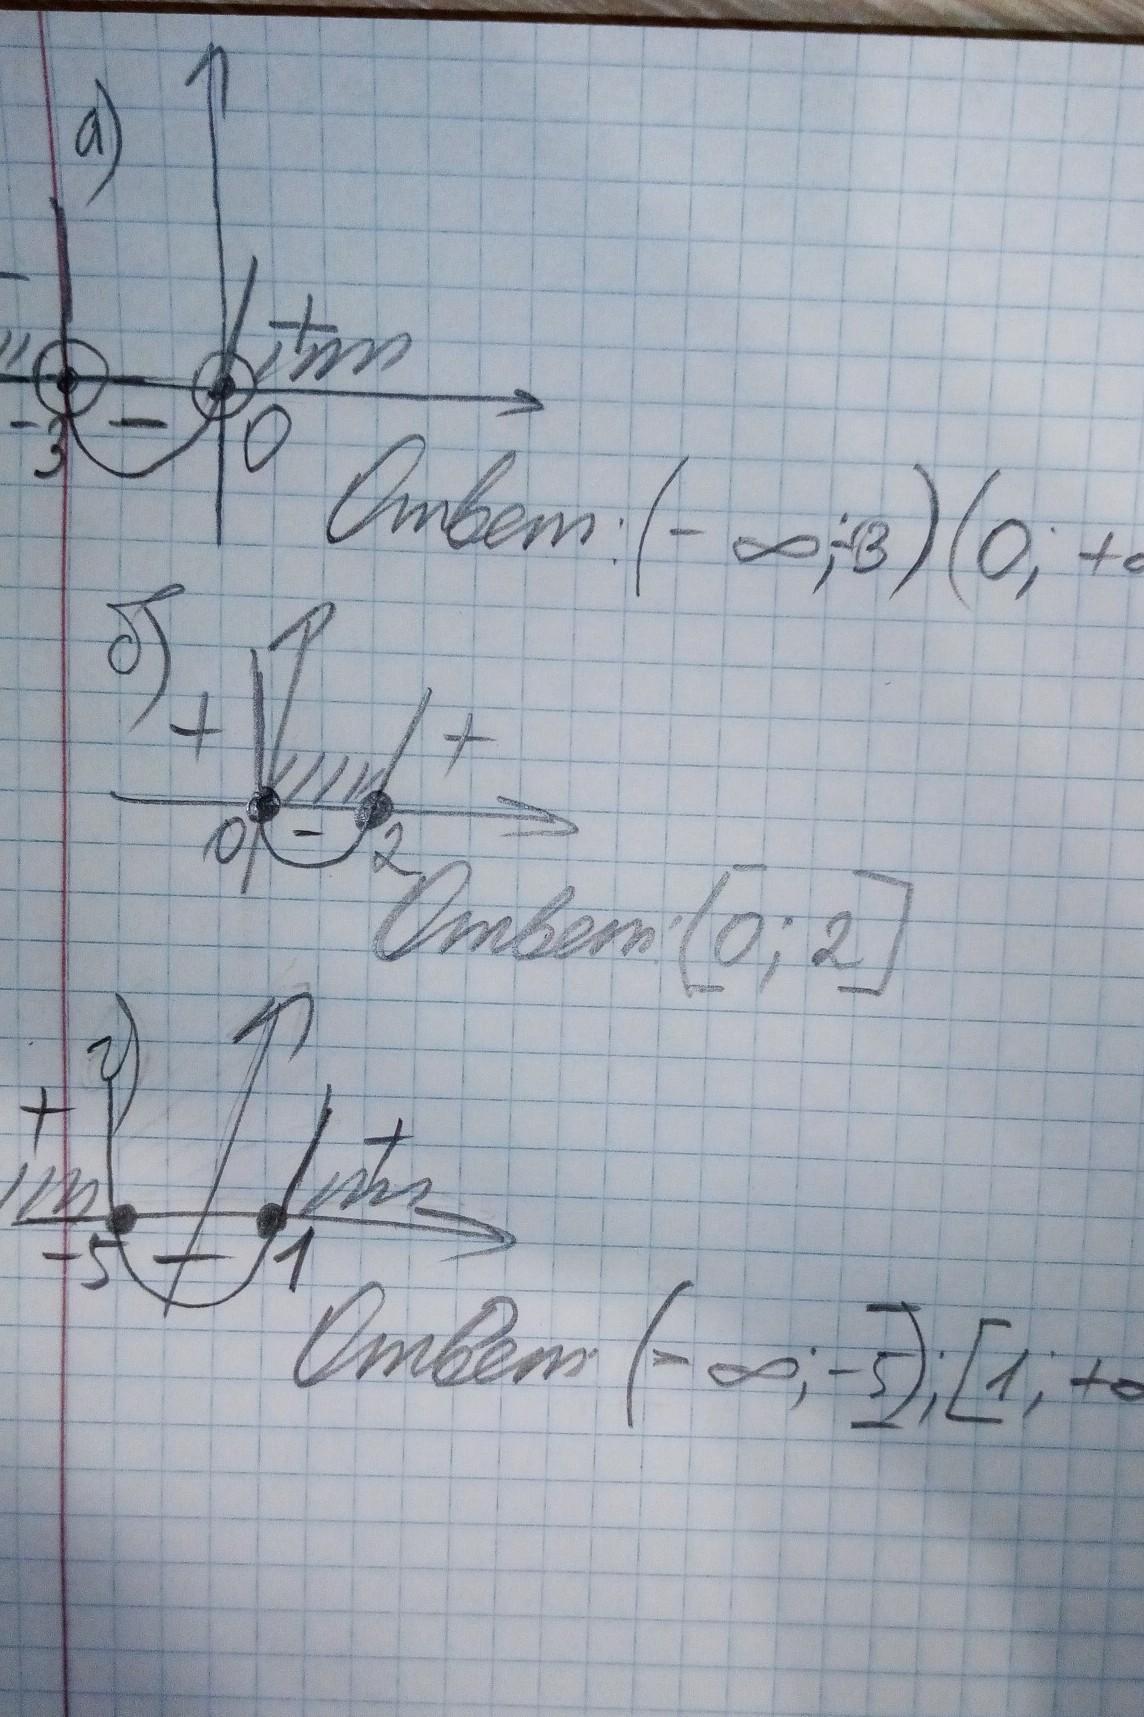 а)
+
-3 - 0
Ответ: (- ∞; -3) (0; +∞
б)
+ +
0 - 2
Ответ: [0; 2]
г)
+ +
-5 - 1
Ответ: (- ∞; -5]; [1; +∞